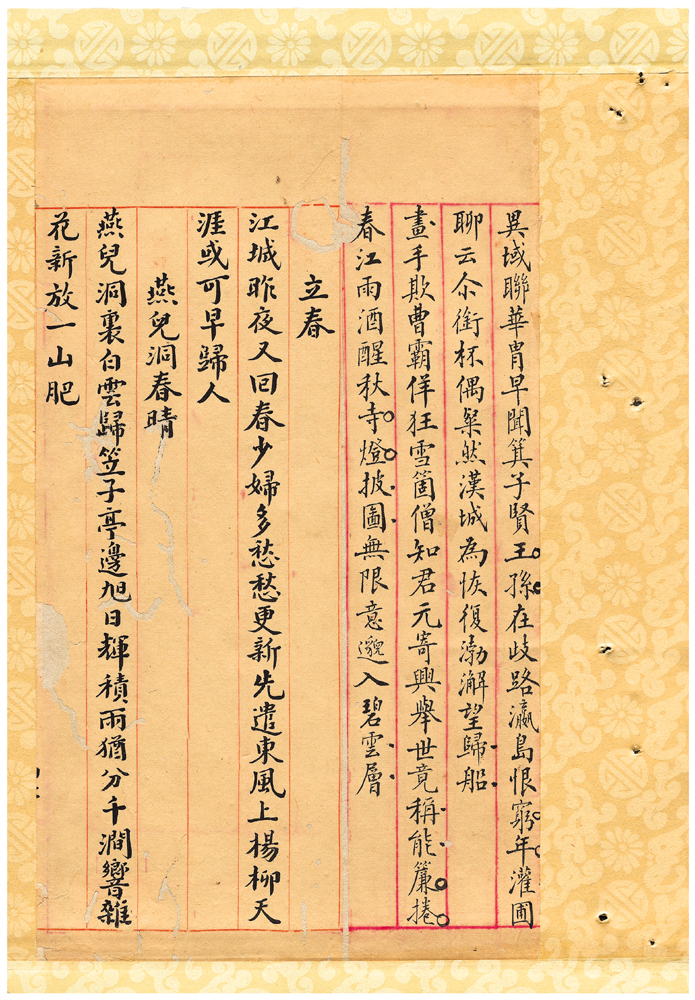 異域聯華胄早聞箕子賢王孫在歧路瀛島恨窮年灌圃
聊云尒銜杯偶粲然漢城為恢復渤澥望歸船
畫手欺曹霸佯狂雪箇僧知君元寄興舉世竟稱能簾捲
春江雨酒醒秋寺燈披圖無限意邈入碧雲層
立春
江城昨夜又回春少婦多愁愁更新先遣東風上楊柳天
涯或可早歸人
燕兒洞春晴
燕兒洞裏白雲歸笠子亭邊旭日輝積雨猶分千澗響雜
花新放一山肥